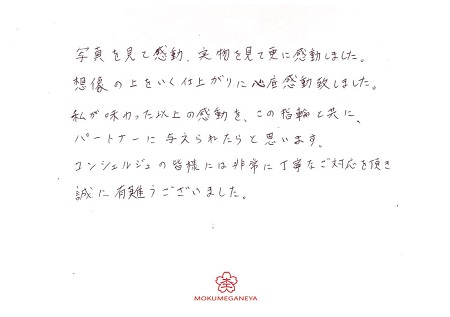 写真を見て感動、実物を見て更に感動しました。
想像の上をいく仕上がりに心底感動致しました。
私が味わった以上の感動を、この指輪と共に、
パートナーに与えられたらと思います。
コンシェルジュの皆様には非常に丁寧なご対応を頂き
誠に有難うございました。
MOKUMEGANEYA